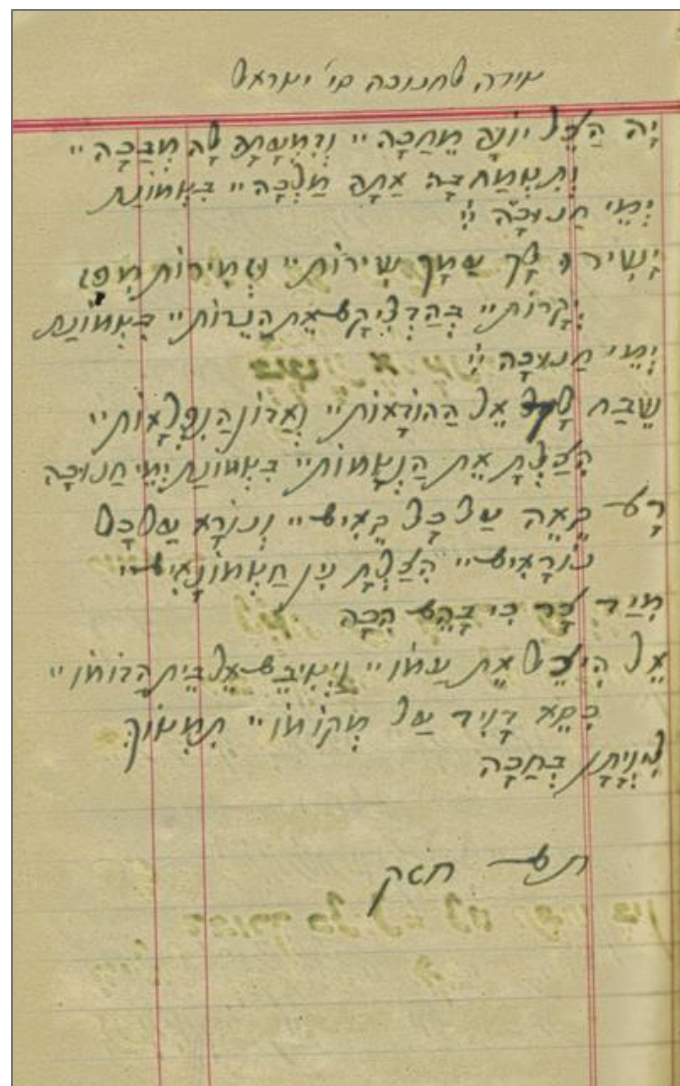 שירה לחנוכה סי' ישראל
יָהּ הַצֵל יוֹנָה מְחַכָּה" וְדִמְעָתָהּ לָהּ מְבַכָּה"
וְתִשְׂמַח בָּהּ אַתָּה מַלְכָּהּ" בִּשְׁמוֹנַת
יְמֵי חֲנוּכָּה"
יָשִׁירוּ לָךְ עַמָּךְ שִׁירוֹת" וּזְמִירוֹת מִפָּז
יְקָרוֹת" בְּהַדְלִיקָם אֶת הַנֵּרוֹת" בִּשְׁמוֹנַת
יְמֵי חֲנוּכָּה"
שֶׁבַח לָךְ אֵל הַהוֹדָאוֹת" וַאֲדוֹן הַנִפְלָאוֹת"
הִצַלְתָּ אֶת הַנְשָׁמוֹת" בִּשְׁמוֹנַת יְמֵי חֲנוּכָּה
רָם גֵאֶה עַל כָּל גֵאִים" וְנוֹרָא עַל כָּל
נוֹרָאִים" הִצַלְתָּ נִין חַשְׁמוֹנָאִים"
מִיַד צָר כִּי בָּהֶם הִכָּה
אֵל הִצִיל אֶת עַמוֹ" וְיָשִׁיבֵם אֶל בֵּית הֲדוֹמוֹ"
כִּסֵא דָוִיד עַל מְקוֹמוֹ" תִּמְשׁוֹךְ
לִוְיָתָן בְּחַכָּה
תם חזק